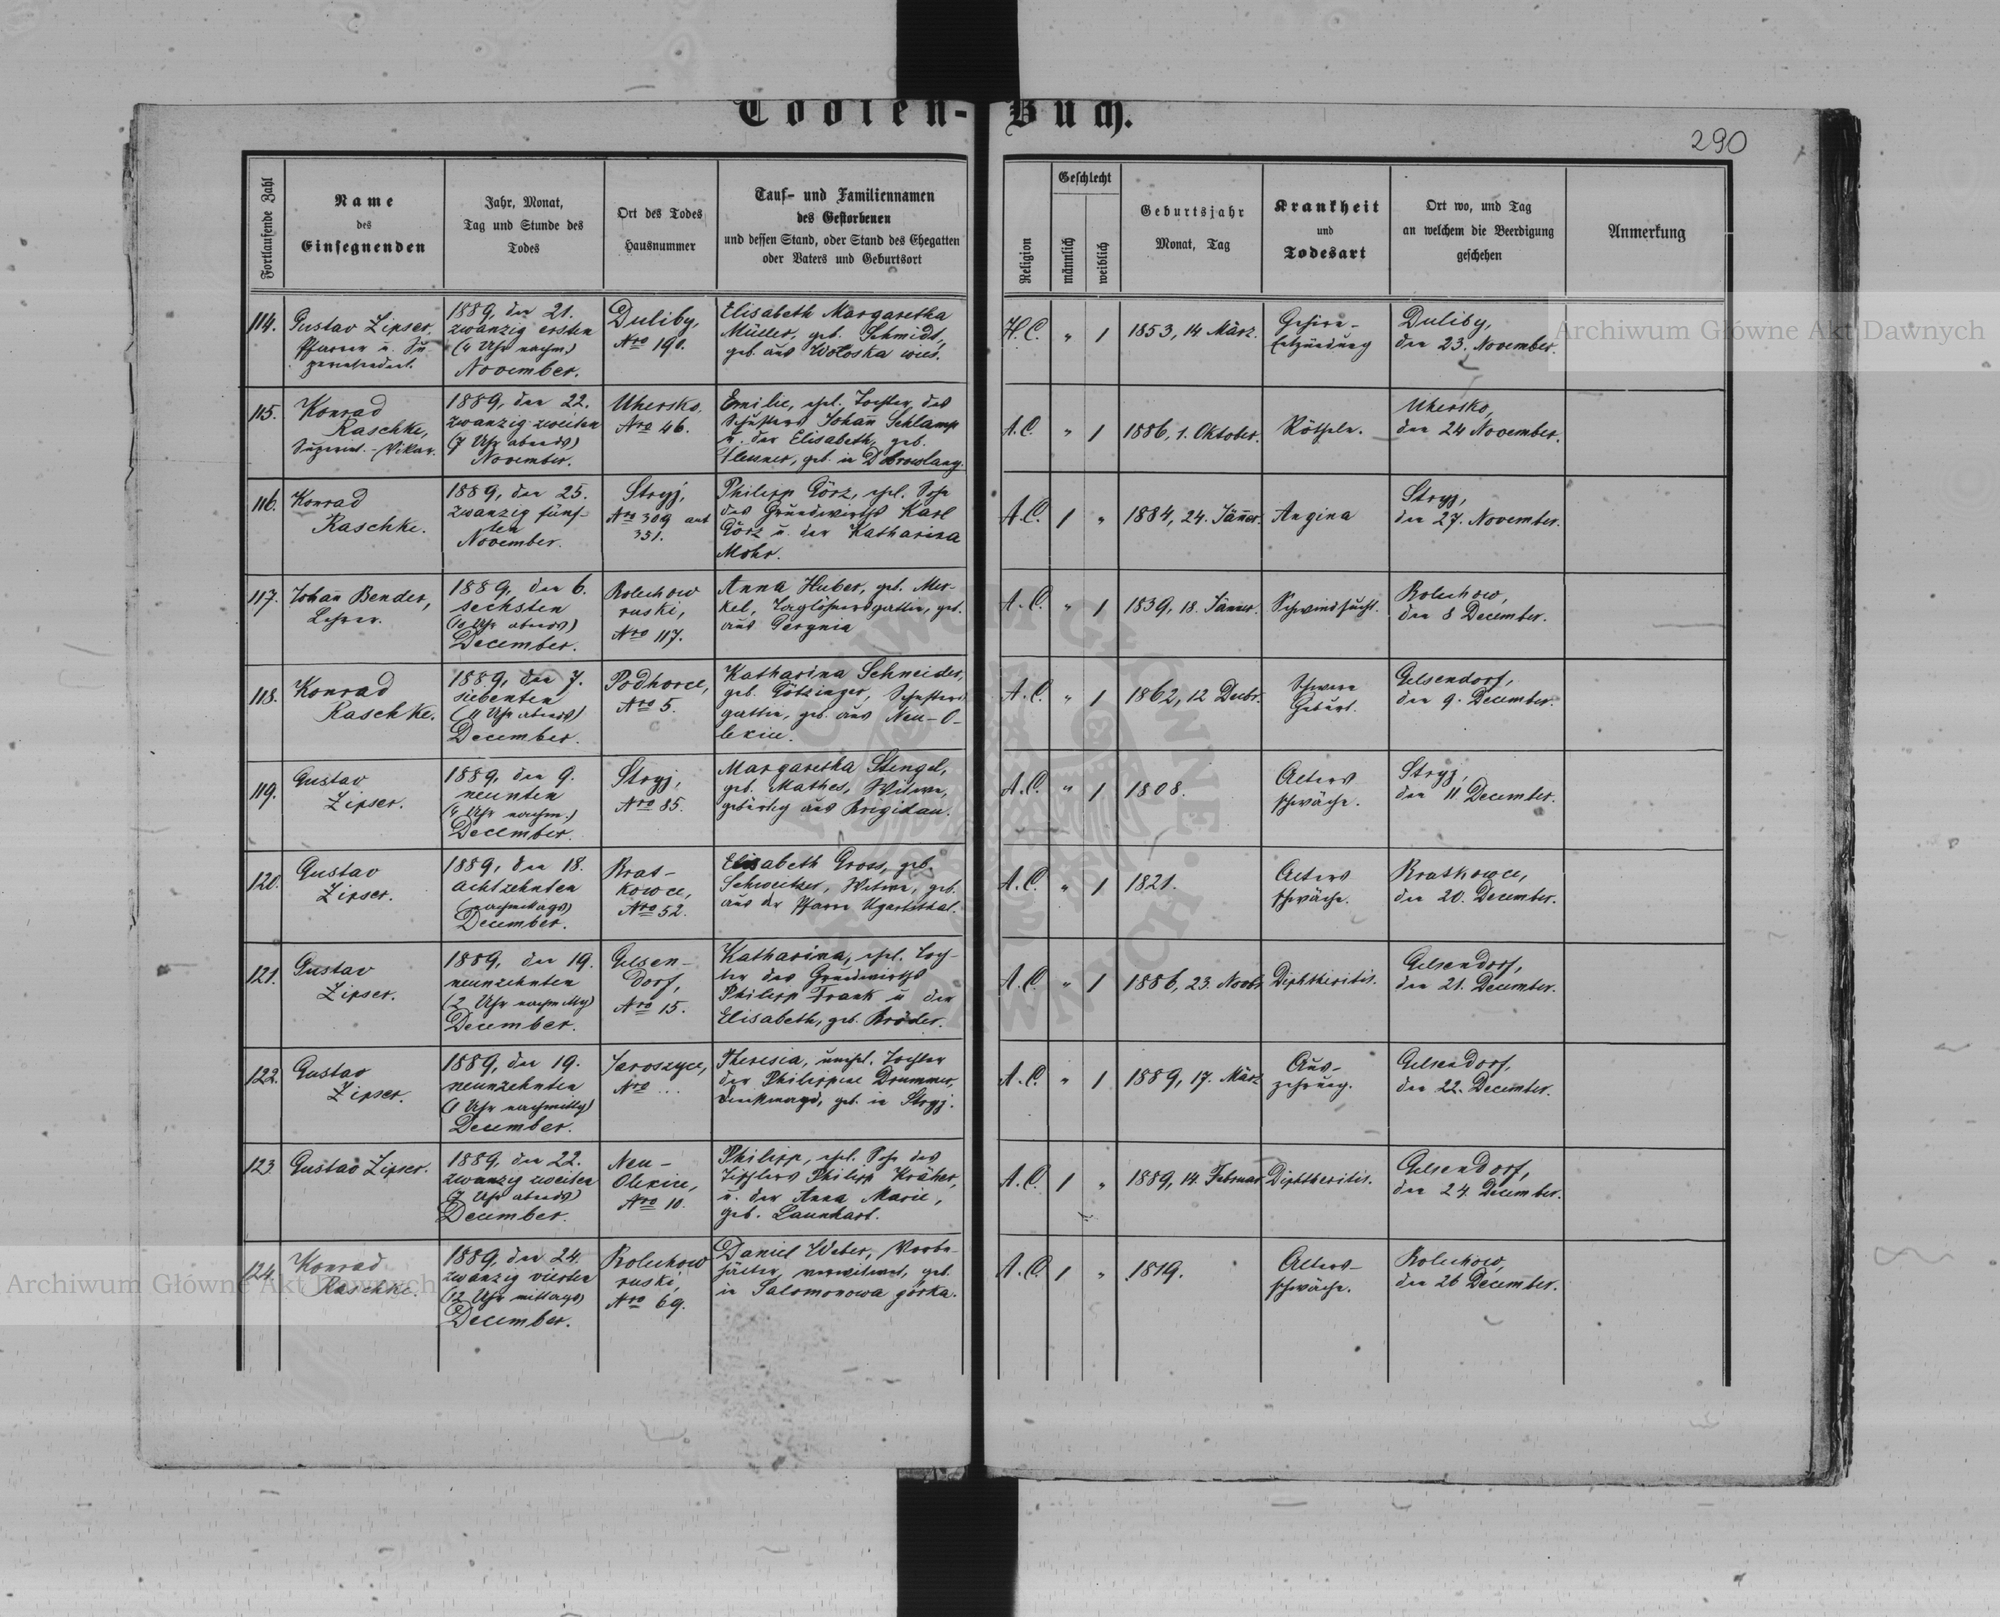 Todten-Buch.
290
Fortlaufende Zahl
Name
des
Einsegnenden
Jahr, Monat,
Tag und Stunde des
Todes
Ort des Todes
Hausnummer
Tauf- und Familiennamen
des Gestorbenen
und dessen Stand, oder Stand des Ehegatten
oder Vaters und Geburtsort
Religion
Geschlecht
männlich
weiblich
Geburtsjahr
Monat, Tag
Krankheit
und
Todesart
Ort wo, und Tag
an welchem die Beerdigung
geschehen
Anmerkung
114.
Gustav Zipser,
Pfarrer u. Su-
perintendent.
1889, den 21.
zwanzig ersten
(4 Uhr nachm.)
November.
Duliby,
Nro 190.
Elisabeth Margaretha
Müller, geb. Schmidt,
geb. aus Wołoska wieś.
H. C.
"
1
1853, 14. März.
Gehirn-
entzündung
Duliby,
den 23. November.
115.
Konrad
Raschke,
Superint.-Vikar.
1889, den 22.
zwanzig zweiten
(7 Uhr abends)
November.
Uhersko,
Nro 46.
Emilie, ehel. Tochter des
Schusters Johañ Schlamp
u. der Elisabeth, geb.
geb. in Dobrowlany.
A. C.
"
1
1886, 1. Oktober.
Rötheln.
Uhersko,
den 24 November.
116.
Konrad
Raschke.
1889, den 25.
zwanzig fünf-
ten
November.
Stryj,
Nro 309 ant
331.
Philipp Görz, ehel. Sohn
des Grundwirths Karl
Görz u. der Katharina
Mohr.
A. C.
1
"
1884, 24. Jäñer.
Angina
Stryj,
den 27. November.
117.
Johañ Bender,
Lehrer.
1889, den 6.
sechsten
(10 Uhr abends)
December.
Bolechow
ruski,
Nro 117.
Anna Huber, geb. Mer-
kel, Taglöhnersgattin, geb.
aus Gergnia
A. C.
"
1
1839, 18. Jänner.
Schwindsucht.
Bolechow,
den 8 December.
118.
Konrad
Raschke.
1889, den 7.
siebenten
(11 Uhr abends)
December.
Podhorce,
Nro 5.
Katharina Schneider,
geb. Götzinger, Schusters-
gattin, geb. aus Neu-O-
lexice.
A. C.
"
1
1862, 12 Decbr.
Schwere
Geburt.
Gelsendorf,
den 9. December.
119.
Gustav
Zipser.
1889, den 9.
neunten
(4 Uhr nachm.)
December.
Stryj,
Nro 85.
Margaretha Stengel,
geb. Mathes, Witwe,
gebürtig aus Brigidau.
A. C.
"
1
1808.
Alters
schwäche.
Stryj,
den 11 December.
120.
Gustav
Zipser.
1889, den 18.
achtzehnten
(nachmittags)
December.
Brat-
kowce,
Nro 52.
Elisabeth Gross, geb.
Schweitzer, Witwe, geb.
aus der Pfarre Ugartsthal.
A. C.
"
1
1821.
Alters
schwäche.
Bratkowce,
den 20. December.
121.
Gustav
Zipser.
1889, den 19.
neunzehnten
(2 Uhr nachmittg)
December.
Gelsen-
dorf,
Nro 15.
Katharina, ehel. Toch-
ter des Grundwirths
Philipp Frank u der
Elisabeth, geb. Bröder.
A. C.
"
1
1886, 23. Novbr.
Diphtheritis.
Gelsendorf,
den 21. December.
122.
Gustav
Zipser.
1889, den 19.
neunzehnten
(1 Uhr nachmittg)
December.
Jaroszyce,
Nro ...
Theresia, unehel. Tochter
der Philippine Drummer,
Dienstmagd, geb. in Stryj.
A. C.
"
1
1889, 17. März
Aus-
zehrung.
Gelsendorf,
den 22. December.
123
Gustav Zipser.
1889, den 22.
zwanzig zweiten
(7 Uhr abends)
December.
Neu-
Olexice,
Nro 10.
Philipp, ehel. Sohn des
Tischlers Philipp Kräher,
u. der Anna Marie,
geb. Launhart.
A. C.
1
"
1889, 14. Februar
Diphtheritis.
Gelsendorf,
den 24. December.
124.
Konrad
Raschke.
1889, den 24.
zwanzig vierten
(12 Uhr mittags)
December.
Bolechow
ruski,
Nro 69.
Daniel Weber,
verwitwet, geb.
in Salomonowa górka.
A. C.
1
"
1819.
Alters-
schwäche.
Bolechow,
den 26 December.
Archiwum Główne Akt Dawnych
Archiwum Główne Akt Dawnych